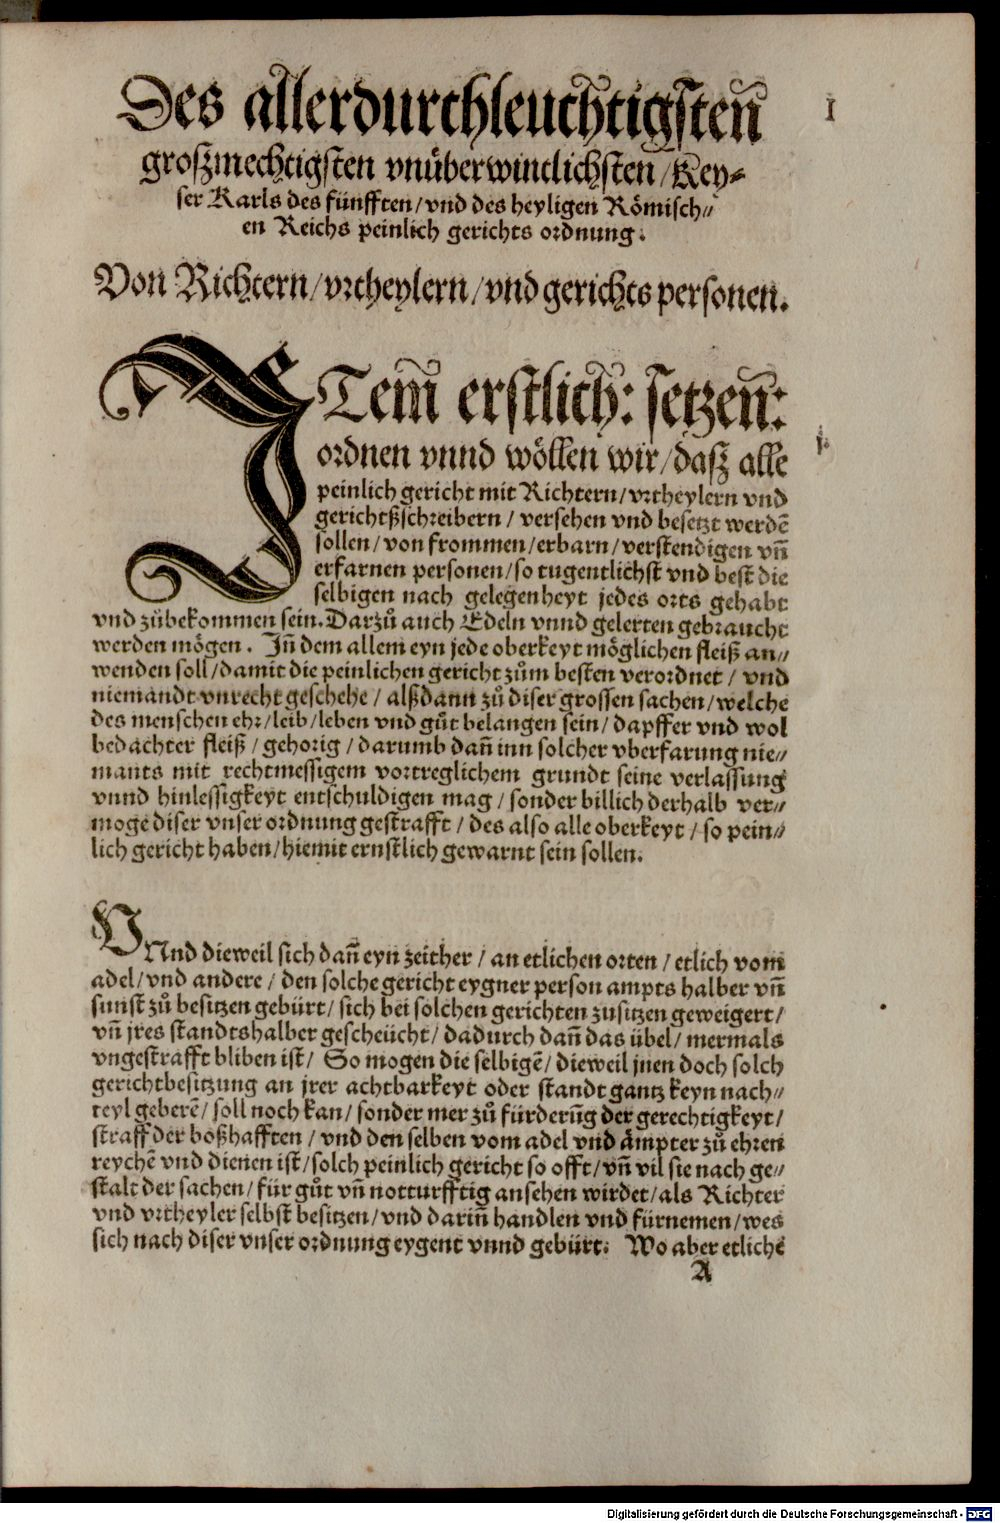 Des allerdurchleuchtigsten̄
I
groſzmechtigsten vnüberwintlichsten / Key⸗
ser Karls des fünfften / vnd des heyligen Römisch⸗
en Reichs peinlich gerichts ordnung.
Von Richtern / vrtheylern / vnd gerichts personen.
ITem̄ erstlich: setzen̄:
ordnen vnnd wöllen wir / daſz alle
j.
peinlich gericht mit Richtern / vrtheylern vnd
gerichtßschreibern / versehen vnd besetzt werdē
sollen / von frommen / erbarn / verstendigen vn̄
erfarnen personen / so tugentlichst vnd best die
selbigen nach gelegenheyt jedes orts gehabt
vnd zůbekommen sein. Darzů auch Edeln vnnd gelerten gebraucht
werden mögen. In̄ dem allem eyn jede oberkeyt möglichen fleiß an⸗
wenden soll / damit die peinlichen gericht zům besten verordnet / vnd
niemandt vnrecht geschehe / alßdann zů diser grossen sachen / welche
des menschen ehr / leib / leben vnd gůt belangen sein / dapffer vnd wol
bedachter fleiß / gehorig / darumb dan̄ inn solcher vberfarung nie⸗
mants mit rechtmessigem vortreglichem grundt seine verlassung
vnnd hinlessigkeyt entschuldigen mag / sonder billich derhalb ver⸗
moge diser vnser ordnung gestrafft / des also alle oberkeyt / so pein⸗
lich gericht haben / hiemit ernstlich gewarnt sein sollen.
VNnd dieweil sich dan̄ eyn zeither / an etlichen orten / etlich vom
adel / vnd andere / den solche gericht eygner person ampts halber vn̄
sunst zů besitzen gebürt / sich bei solchen gerichten zusitzen geweigert /
vn̄ jres standtshalber gescheücht / dadurch dan̄ das übel / mermals
vngestrafft bliben ist / So mogen die selbigē / dieweil jnen doch solch
gerichtbesitzung an jrer achtbarkeyt oder standt gantz keyn nach⸗
teyl geberē / soll noch kan / sonder mer zů fürderūg der gerechtigkeyt /
straff der boßhafften / vnd den selben vom adel vnd ämpter zů ehren
reychē vnd dienen ist / solch peinlich gericht so offt / vn̄ vil sie nach ge⸗
stalt der sachen / für gůt vn̄ notturfftig ansehen wirdet / als Richter
vnd vrtheyler selbst besitzen / vnd darin̄ handlen vnd fürnemen / wes
sich nach diser vnser ordnung eygent vnnd gebürt. Wo aber etliche
A
Digitalisierung gefördert durch die Deutsche Forschungsgemeinschaft - DFG